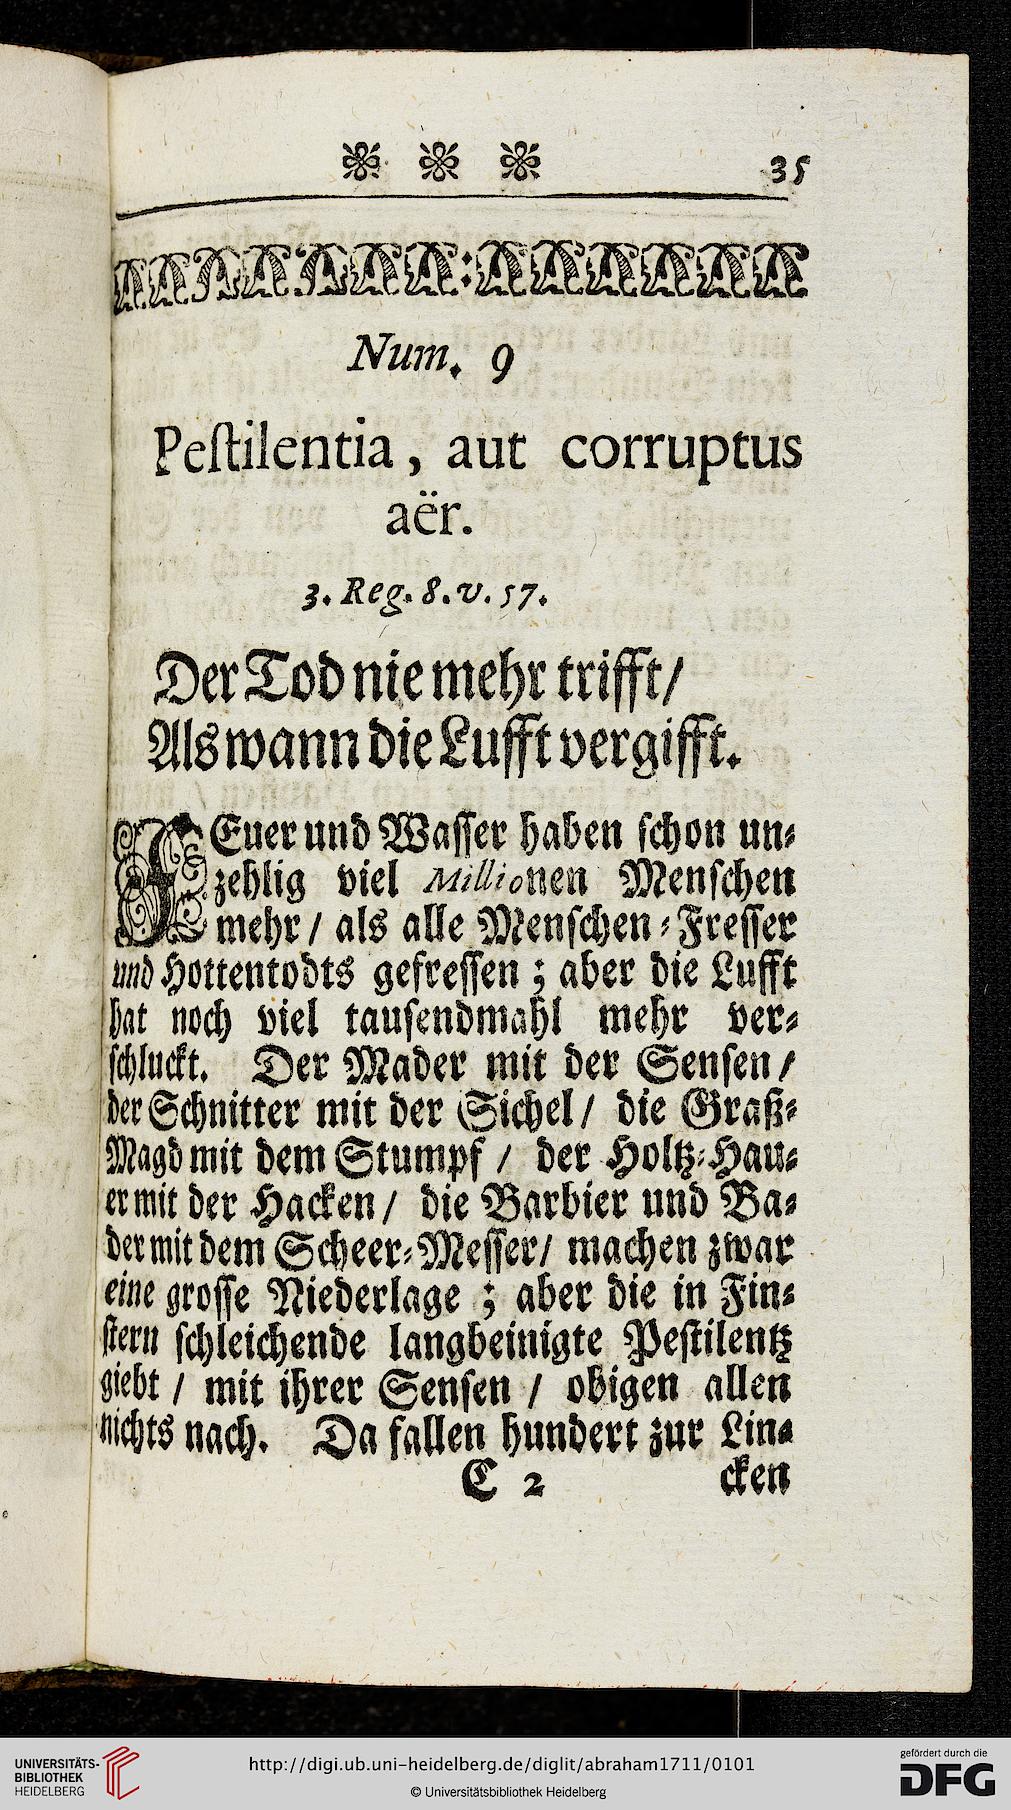 35
Num. 9
Peſtilentia, aut corruptus
aër.
3. Reg. 8. v. 57.
Der Tod nie mehr trifft/
Als wann die Lufft vergifft.
FEuer und Waſſer haben ſchon un⸗
zehlig viel Millionen Menſchen
mehr / als alle Menſchen⸗Freſſer
und Hottentodts gefreſſen ; aber die Lufft
hat noch viel tauſendmahl mehr ver⸗
ſchluckt. Der Mader mit der Senſen /
der Schnitter mit der Sichel / die Graß⸗
Magd mit dem Stumpf / der Holtz⸗Hau⸗
er mit der Hacken / die Barbier und Ba⸗
der mit dem Scheer⸗Meſſer / machen zwar
eine groſſe Niederlage ; aber die in Fin⸗
ſtern ſchleichende langbeinigte Peſtilentz
giebt / mit ihrer Senſen / obigen allen
nichts nach. Da fallen hundert zur Lin⸗
C 2 cken
UNIVERSITÄTS-
BIBLIOTHEK
HEIDELBERG
http://digi.ub.uni-heidelberg.de/diglit/abraham1711/0101
© Universitätsbibliothek Heidelberg
gefördert durch die
DFG